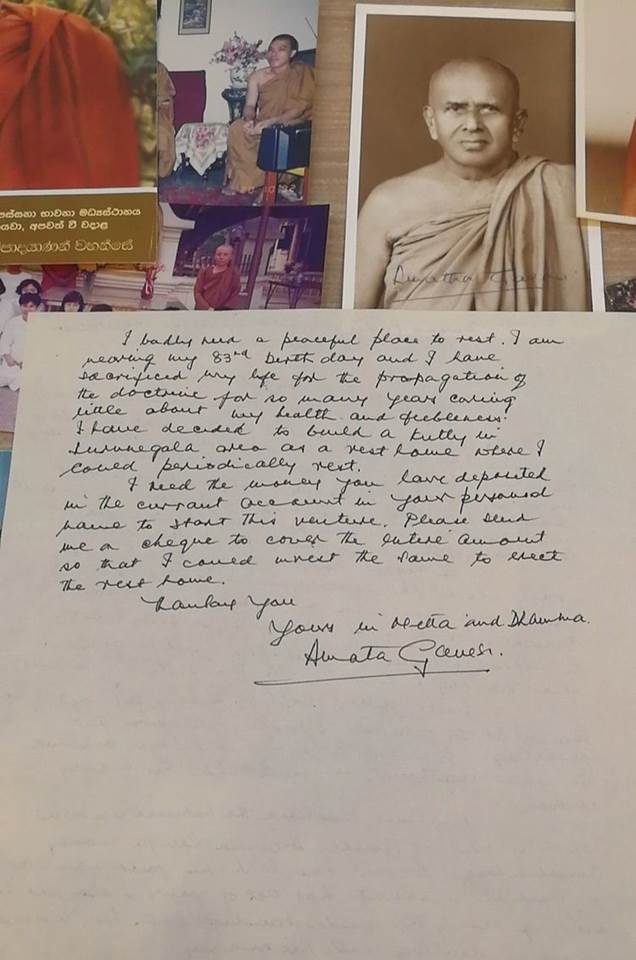 පස්සනා භාවනා මධ්‍යස්ථානය
යෙවා, අපවත් වී වදාළ
පාදයාණන් වහන්සේ
I badly need a peaceful place to rest. I am
nearing my 83rd birth day and I have
sacrificed my life for the propagation of
the doctrine for so many years caring
little about my health and feebleness.
I have decided to build a kutty in
Kurunegala area as a rest home where I
could periodically rest.
I need the money you have deposited
in the currant account in your personal
name to start this venture. Please send
me a cheque to cover the entire amount
so that I could invest the same to erect
the rest home.
Thanking You
Yours in Metta and Dhamma.
Amata Gavesi.